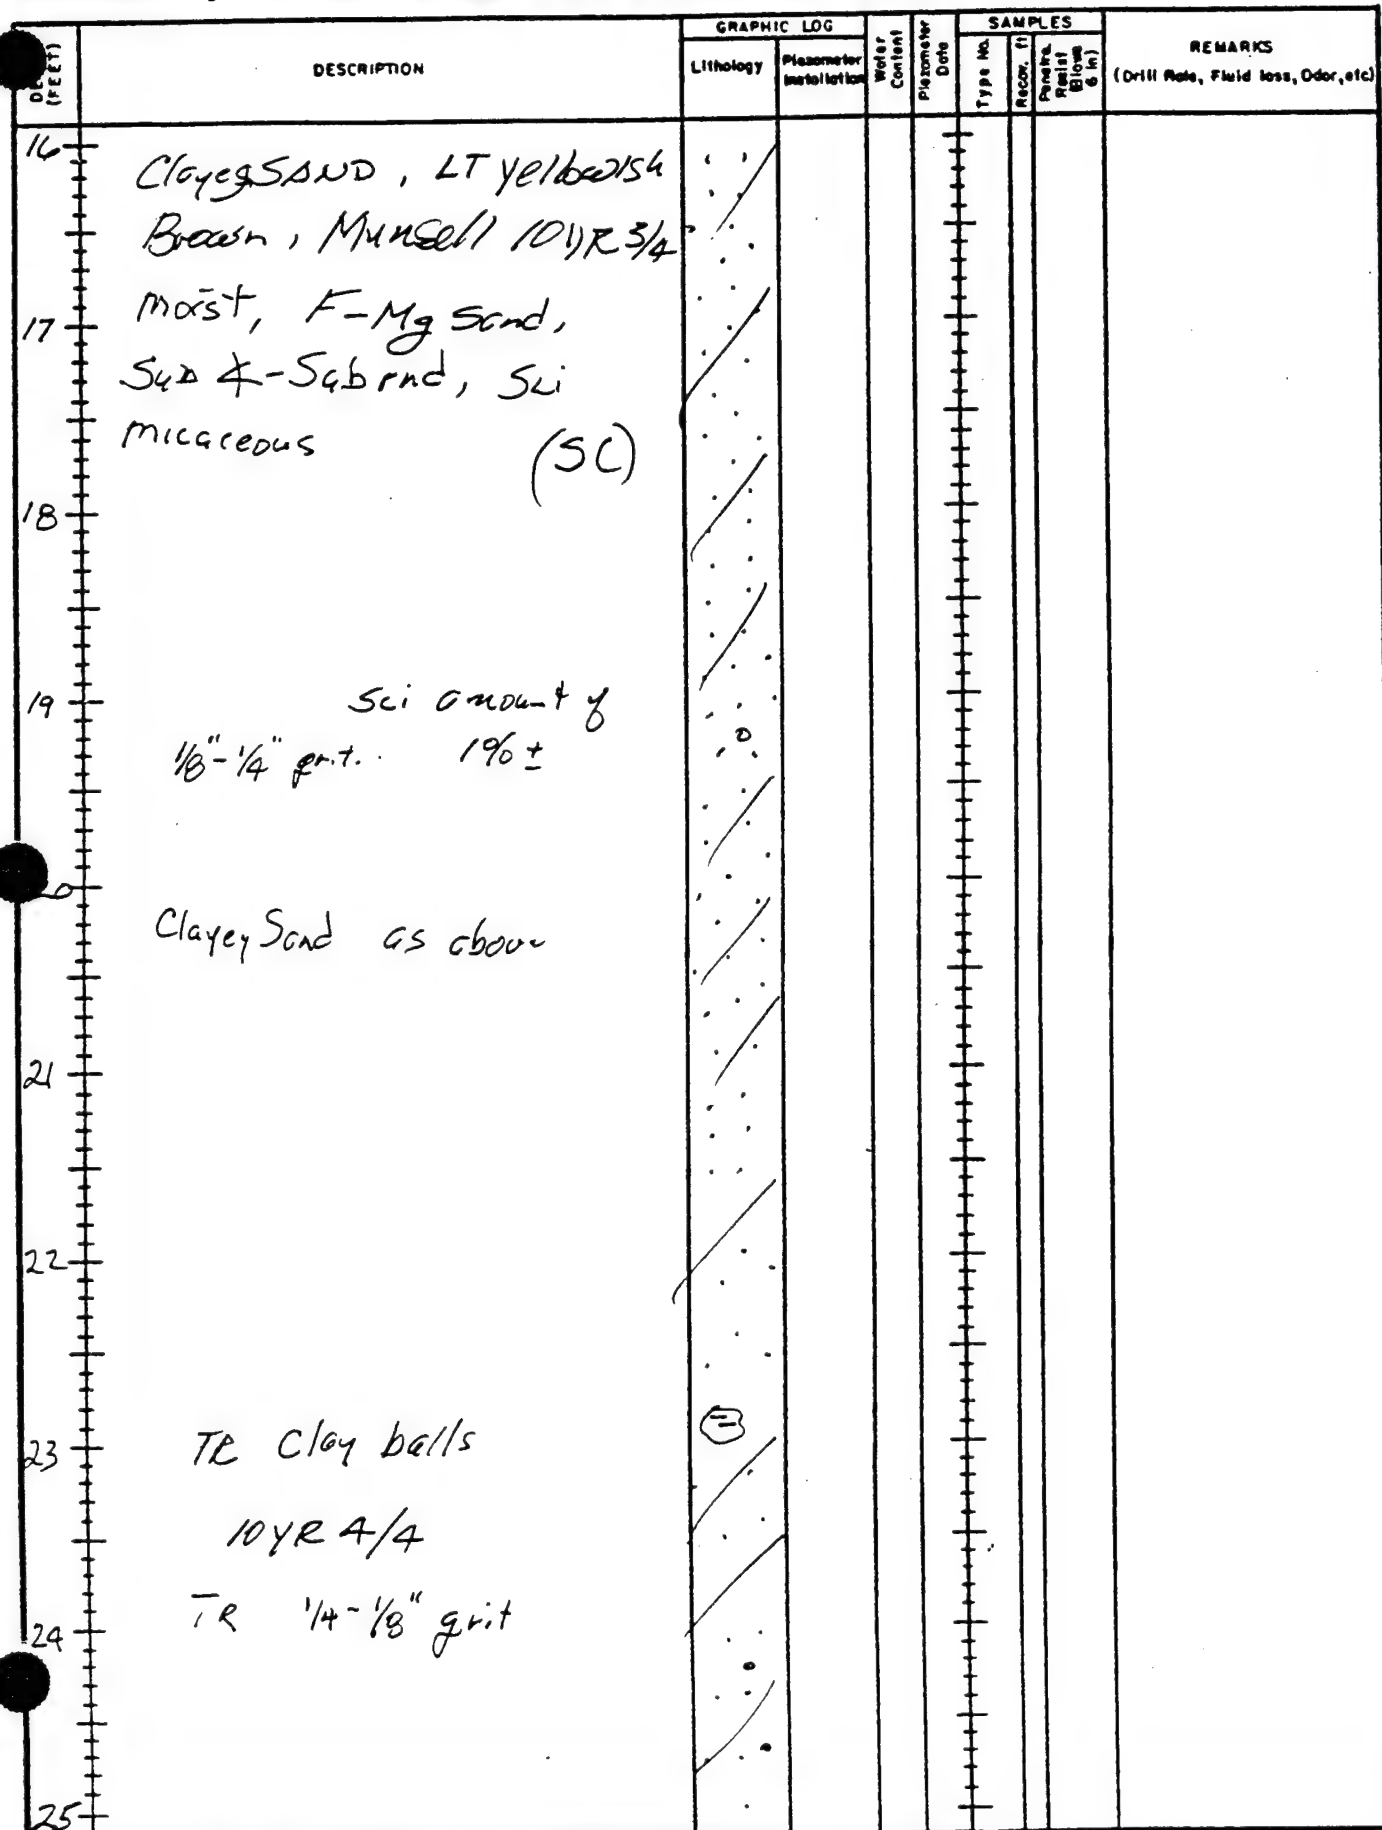 DESCRIPTION
GRAPHIC LOG
Lithology
Piezometer Installation
Water Content
Piezometer Date
SAMPLES
Type No.
Recov. ft
Penetra. Resist (Blows 6 in)
REMARKS
(Drill Rate, Fluid loss, Odor, etc)
(FEET)
16
Clayey SAND, LT yellowish
Brown, Munsell 10YR 3/4
17
moist, F-Mg Sand,
Sub ∡-Subrnd, SLi
micaceous (SC)
18
19
SLi amount of
1/8"-1/4" grit. 1% ±
20
Clayey Sand as above
21
22
23
TR Clay balls
10YR 4/4
24
TR 1/4-1/8" grit
25